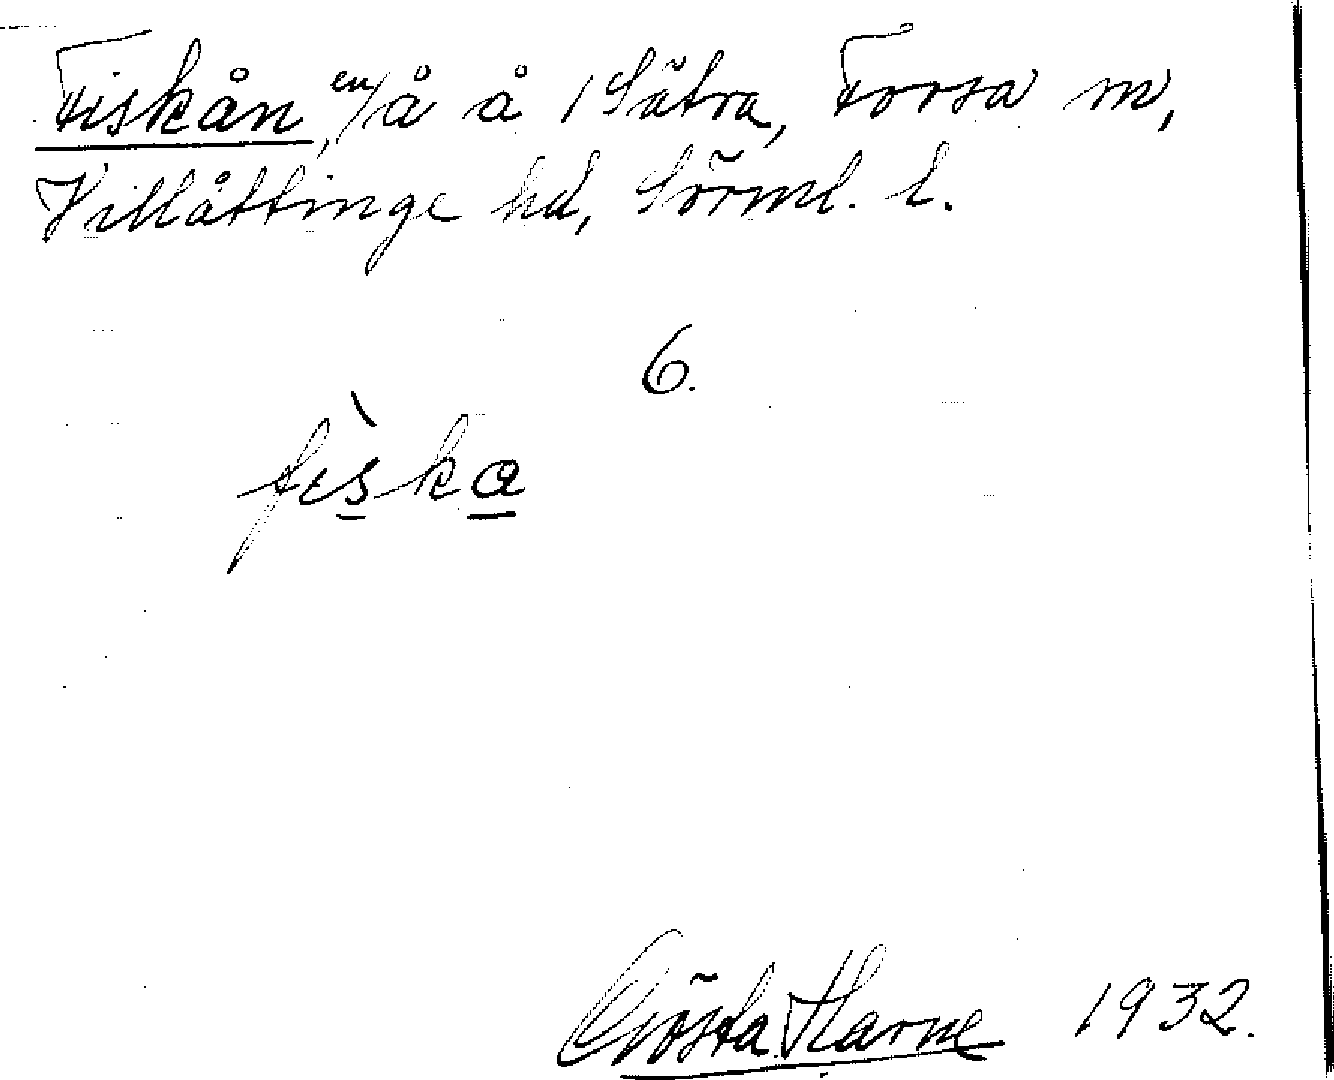 Fiskån, en/å å 1 Sätra, Forsa sn,
Villåttinge hd, Sörml. l.
6.
fìska
Gösta Harne 1932.